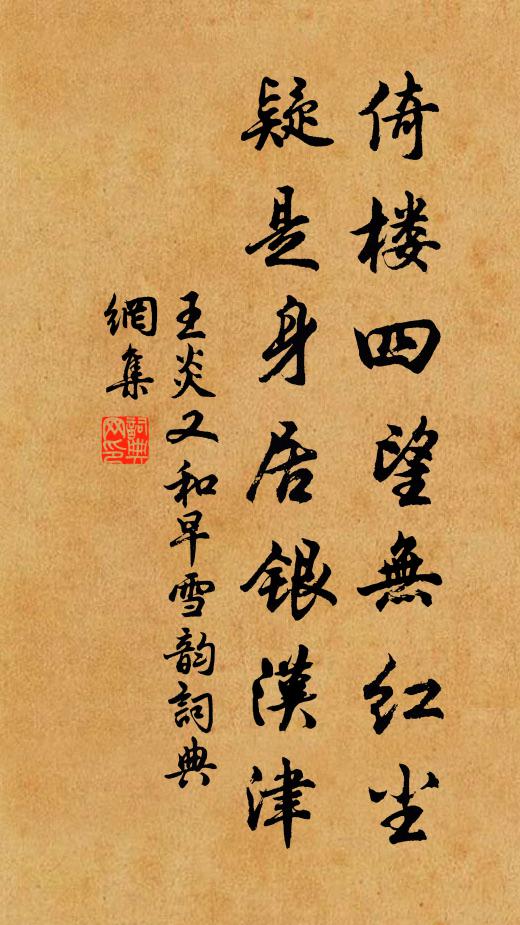 倚楼四望無红尘
疑是身居银漢津
王炎又和早雪韵詞典
網集
詞典网印